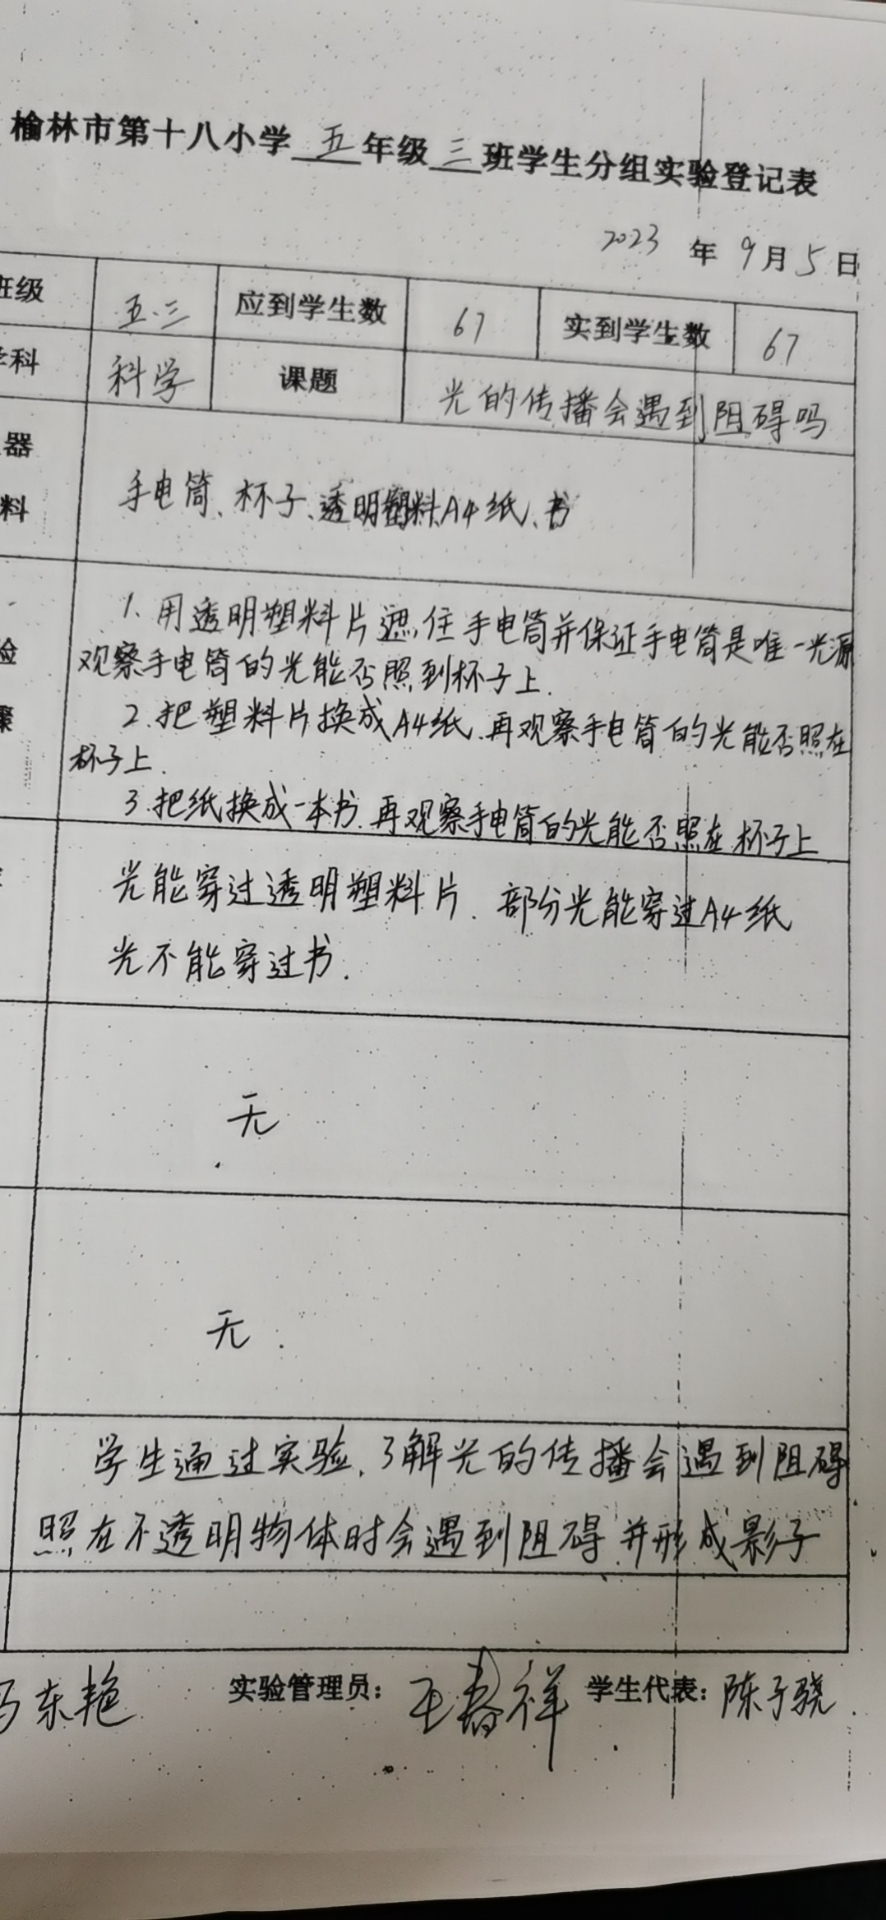 榆林市第十八小学五年级三班学生分组实验登记表
2023年9月5日
班级 五.三 应到学生数 67 实到学生数 67
学科 科学 课题 光的传播会遇到阻碍吗
器
料
手电筒、杯子、透明塑料A4纸、书
1、用透明塑料片遮住手电筒并保证手电筒是唯一光源
观察手电筒的光能否照到杯子上.
验
2.把塑料片换成A4纸.再观察手电筒的光能否照在
骤
杯子上.
3.把纸换成一本书.再观察手电筒的光能否照在杯子上
光能穿过透明塑料片.部分光能穿过A4纸
光不能穿过书.
无
无.
学生通过实验.了解光的传播会遇到阻碍
照在不透明物体时会遇到阻碍.并形成影子
冯东艳 实验管理员: 王春祥 学生代表: 陈子骁